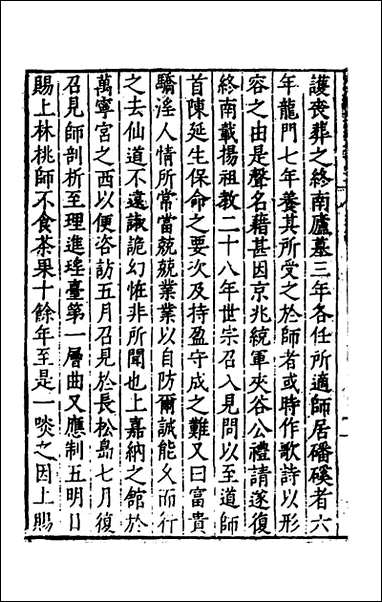 護喪葬之終南廬墓三年各任所適師居磻磎者六
年龍門七年養其所受之於師者或時作歌詩以形
容之由是聲名藉甚因京兆統軍夾谷公禮請遂復
終南載揚祖教二十八年世宗召入見問以至道師
首陳延生保命之要次及持盈守成之難又曰富貴
驕淫人情所常當兢兢業業以自防爾誠能久而行
之去仙道不遠諔詭幻恠非所聞也上嘉納之館於
萬寧宮之西以便咨訪五月召見於長松島七月復
召見師剖析至理進瑤臺第一層曲又應制五明日
賜上林桃師不食茶果十餘年至是一啖之因上賜